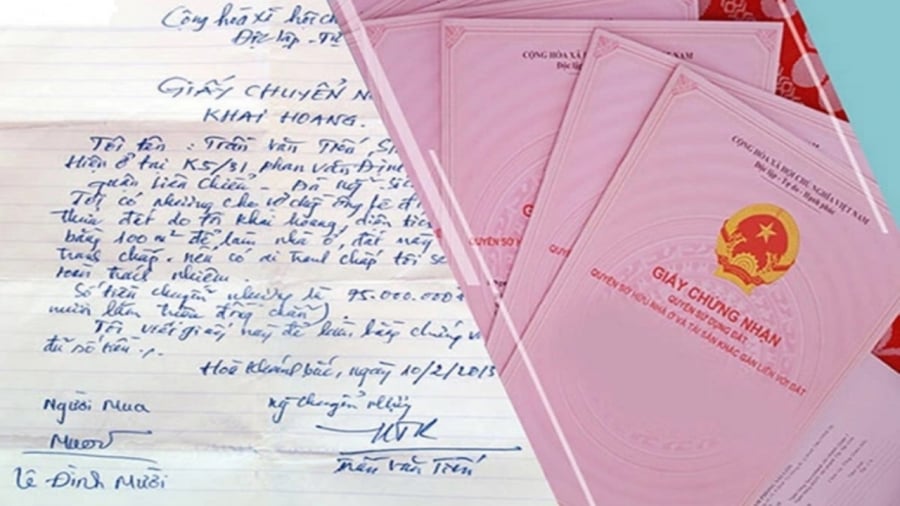 Cộng hòa xã hội ch
Độc lập - Tự
GIẤY CHUYỂN N
KHAI HOANG.
Tôi tên : Trần Văn Tiến, Si
Hiện ở tại K5/31, phan Văn Định
quận Liên Chiểu - Đà nẵng -
Tôi có nhượng cho vợ chồng ông
thửa đất do tôi khai hoang, diện tích
bằng 100 m² để làm nhà ở, đất này
tranh chấp. nếu có ai tranh chấp tôi sẽ
toàn trách nhiệm.
Số tiền chuyển nhượng là 95.000.000
mươi lăm triệu đồng chẵn)
Tôi viết giấy này để làm bằng chứng và
đủ số tiền.
Hoà Khánh bắc, ngày 10/2/2013
Người Mua
ng chuyển nhượng
Trần Văn Tiến
Lê Đình Mười
CỘNG HÒA XÃ
Độc lập
NAM
QUYỀN SỞ H
CỘNG HÒA XÃ HỘI CHỦ NGHĨA VIỆT NAM
Độc lập - Tự do - Hạnh phúc
GIẤY CHỨNG NHẬN
QUYỀN SỬ DỤNG ĐẤT
QUYỀN SỞ HỮU NHÀ Ở VÀ TÀI SẢN KHÁC GẮN LIỀN VỚI ĐẤT